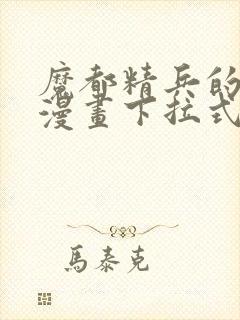 魔都精兵的
漫畫下拉式
馬泰克